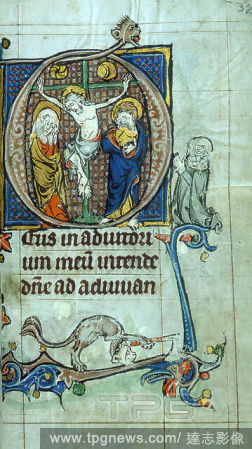 32
Eus in adiutori
um meū intende
dn̄e ad adiuuan
TPG
www.tpgnews.com/ 達志影像